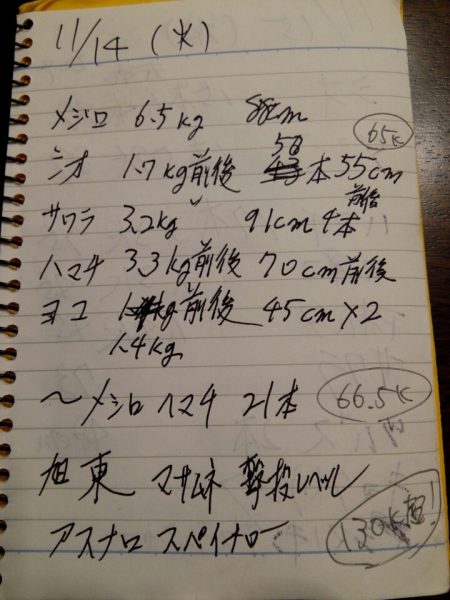 11/14 (火)
メジロ 6.5kg 88cm
65K
シオ 1.7kg前後 50本 55cm前後
サワラ 3.2kg 91cm 4本
ハマチ 3.3kg前後 70cm前後
ヨコ 前後 45cm×2
1.4kg
〜メジロ ハマチ 21本 66.5K
旭東 マサムネ 撃投レベル
アスナロ スペイナロー 130K超!